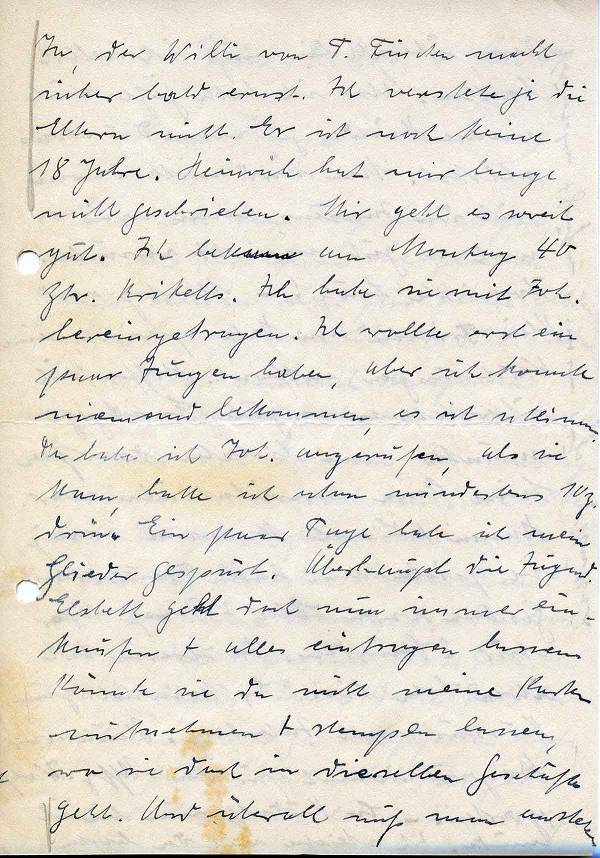 Ja, der Willi von T. Tinchen macht
sicher bald ernst. Ich verstehe ja die
Eltern nicht. Er ist noch keine
18 Jahre. Heinrich hat mir lange
nicht geschrieben. Mir geht es soweit
gut. Ich bekam am Montag 40
Ztr. Briketts. Ich habe sie mit Joh.
hereingetragen. Ich wollte erst ein
paar Jungen haben, aber ich konnte
niemand bekommen, es ist
Da habe ich Joh. angerufen, als sie
kam, hatte ich schon mindestens 10 Z.
drin. Ein paar Tage habe ich meine
Glieder gespürt. Überhaupt die Jugend.
Elsbeth geht doch nun immer ein-
kaufen + alles eintragen lassen
Könnte sie da nicht meine Karten
mitnehmen + stempeln lassen,
wo sie doch in dieselben Geschäfte
geht. Und überall muß man anstehen